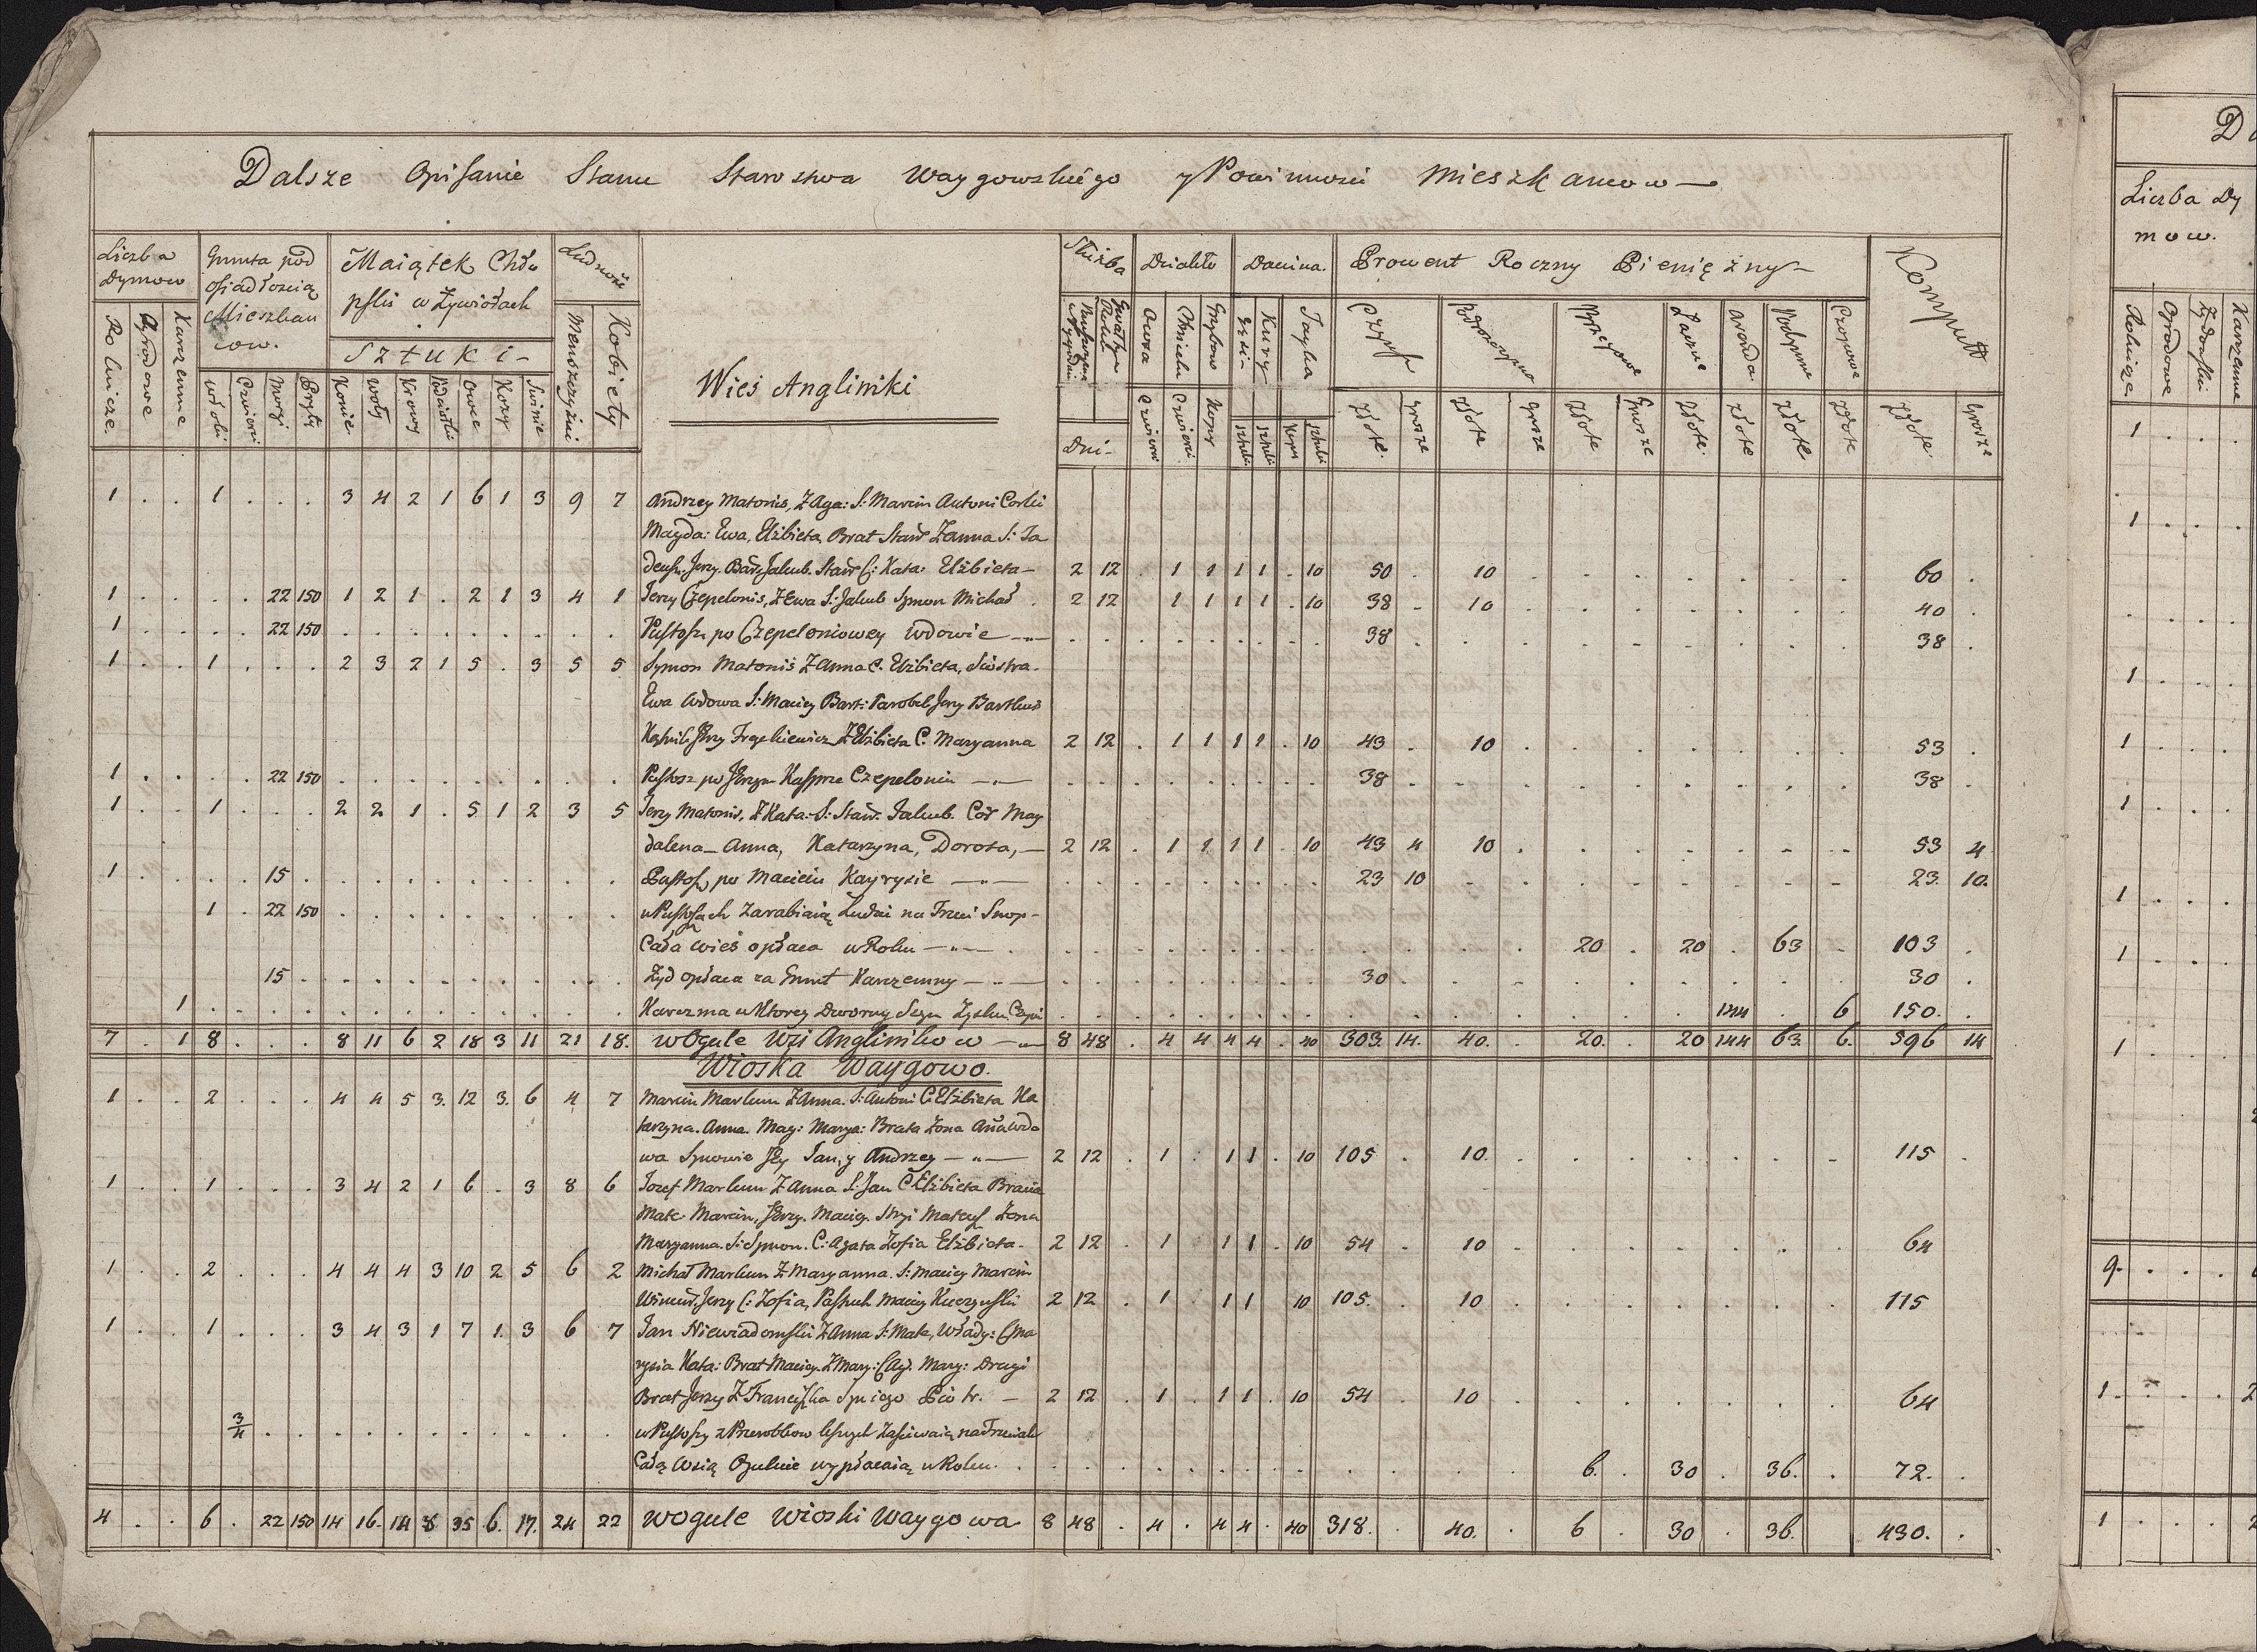 Dalsze Opisanie Stanu Starostwa Waygowskiego y Powinnosci Mieszkancow —
Liczba Dymow
Grunta pod osiadłoscią Mieszkancow.
Maiątek Chłopski w Żywiołach
Sztuki -
Ludność
Wieś Angliniki
Służba
Dziakło
Danina.
Prowent Roczny Pienięzny —
Komput
Rolnicze. Ogrodowe Karczemne
Włoki Czwierci Morgi Pręty
Konie Woły Krowy Owce Kozy Swinie
Kobiety
Dni-
Owsa Chmielu Grzybow Gęsi - Kury Jayka
Czwierci Czwierci Kopy sztuki sztuki Kopy sztuki
Czynsz Arenda Podymne Czopowe
Złote. Grosze Złote Grosze Złote Grosze Złote. Złote Złote Złote Złote. Grosze
1 . . 1 . . . 3 4 2 1 6 1 3 9 7 Andrzey Matonis, Z Aga: S: Marcin Antoni Corki
Magda: Ewa, Elżbieta, Brat Staw Z Anna S: Ta
deusz. Jerzy. Jakub. Staw C: Kata: Elżbieta — 2 12 . 1 1 1 1 . 10 50 . 10 . . . . . . . . 60 .
1 . . . . 22 150 1 2 1 . 2 1 3 4 1 Jerzy Czepelonis, Z Ewa S: Jakub Symon Michał . 2 12 1 1 1 1 . 10 38 - 10 . . . . . . . . 40 .
1 . . . . 22 150 . . . . . . . . . Pustosz po Czepeloniowey Wdowie — . . . . . . . . . 38 . . . . . . . . . . 38 .
1 . . 1 . . . 2 3 2 1 5 . 3 5 5 Symon Matonis Z Anna C. Elżbieta, Siostra.
Ewa Wdowa S: Maciey Bart: Parobek Jerzy Bartkus
Jerzy Z Elżbieta C. Maryanna 2 12 . 1 1 1 1 . 10 43 . 10 . . . . . . . . 53 .
1 . . . . 22 150 . . . . . . . . . Pustosz po Kasprze Czepeloniu — . . . . . . . . . 38 . . . . . . . . . . 38 .
1 . . 1 . . . 2 2 1 . 5 1 2 3 5 Jerzy Matonis, Z Kata: S: Staw. Jakub. Cór Mag
dalena — Anna, Katarzyna, Dorota, — 2 12 . 1 1 1 1 . 10 43 4 10 . . . . . . . . 53 4
1 . . . . 15 . . . . . . . . . . Pustosz po Macieiu Kayrysie — . . . . . . . . . 23 10 . . . . . . . . . 23. 10.
1 . 22 150 . . . . . . . . . w Pustoszach Zarabiaią Ludzi na Trzeci Snop -
Cała Wieś opłaca w Roku — . . . . . . . . . . . . . 20 . 20 . 63 . 103 .
15 . . . . . . . . . . Żyd opłaca za Grunt Karczemny — . . . . . . . . . 30 . . . . . . . . . . 30 .
1 . . . . . . . . . . . . . Karczma w Ktorey Dworny Szyn . . . . . . . . . . . . . . . . 144 . 6 150. .
7 . 1 8 . . . 8 11 6 2 18 3 11 21 18. w Ogule Wsi Anglinikow — 8 48 . 4 4 4 4 . 40 303. 14. 40. . 20. . 20 144 63. 6. 596 14
Wioska Waygowo.
1 . . 2 . . . 4 4 5 3. 12 3. 6 4 7 Marcin Markun Z Anna. S: Antoni C. Elżbieta Ka
tarzyna. Anna. Mag: Marya: Brata Żona Wdo
wa Synowie Jan, y Andrzey — 2 12 . 1 . 1 1 . 10 105 . 10. . . . . . . . . 115 .
1 . . 1 . . . 3 4 2 1 6 . 3 8 6 Jozef Markun Z Anna S: Jan C Elżbieta Bracia
Mate. Marcin, Jerzy. Maciey. Stryi Mateusz Żona
Maryanna. S: Symon. C: Agata Zofia Elżbieta. 2 12 . 1 . 1 1 . 10 54 . 10 . . . . . . . . 64
1 . . 2 . . . 4 4 4 3 10 2 5 6 2 Michał Markun Z Maryanna. S: Maciey Marcin
Jerzy C: Zofia, Pastuch Maciey Kuczynski 2 12 . 1 . 1 1 10 105. . 10 . . . . . . . . 115
1 . . 1 . . . 3 4 3 1 7 1. 3 6 7 Jan Niewiadomski Z Anna S: Mate, Włady: C Ma
rysia Kata: Brat Maciey. Z Mary: C Ag. Mary: Drugi
Brat Jerzy Z Franciszka Syn iego Piotr. — 2 12 . 1 . 1 1 . 10 54 . 10 . . . . . . . . 64
3/4 . . . . . . . . . . . . w Pustoszy z Przerobkow Zasiewaią
Całą Wsią Ogulnie wypłacaią w Roku. . . . . . . . . . . . . . . 6. . 30 . 36. . 72. .
4 . . 6 . 22 150 14 16. 14 8 35 6. 17. 24 22 Wogule Wioski Waygowa 8 48 . 4 . 4 4 . 40 318. . 40. . 6 . 30 . 36. 430. .
D
Liczba Dy
mow.
Rolnicze Ogrodowe Żydowski Karczemne
1
1
1
1
1
1
1
1
9.
1
1